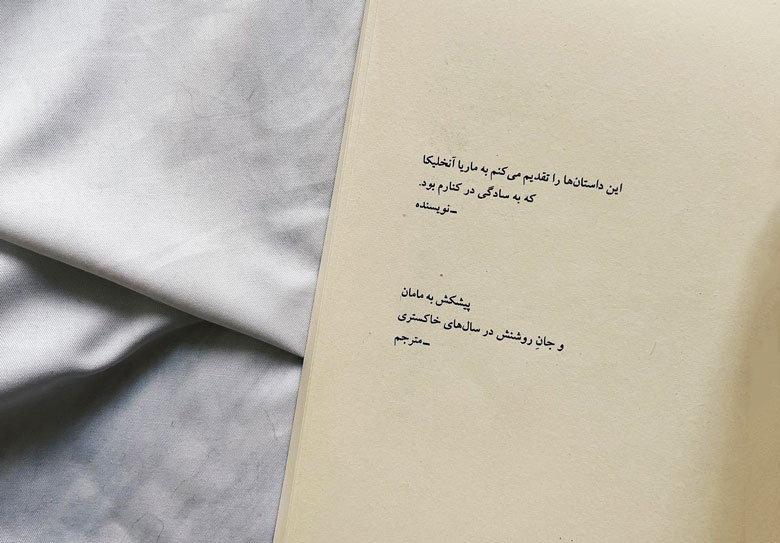 این داستان‌ها را تقدیم می‌کنم به ماریا آنخلیکا
که به سادگی در کنارم بود.
ـ نویسنده
پیشکش به مامان
و جانِ روشنش در سال‌های خاکستری
ـ مترجم